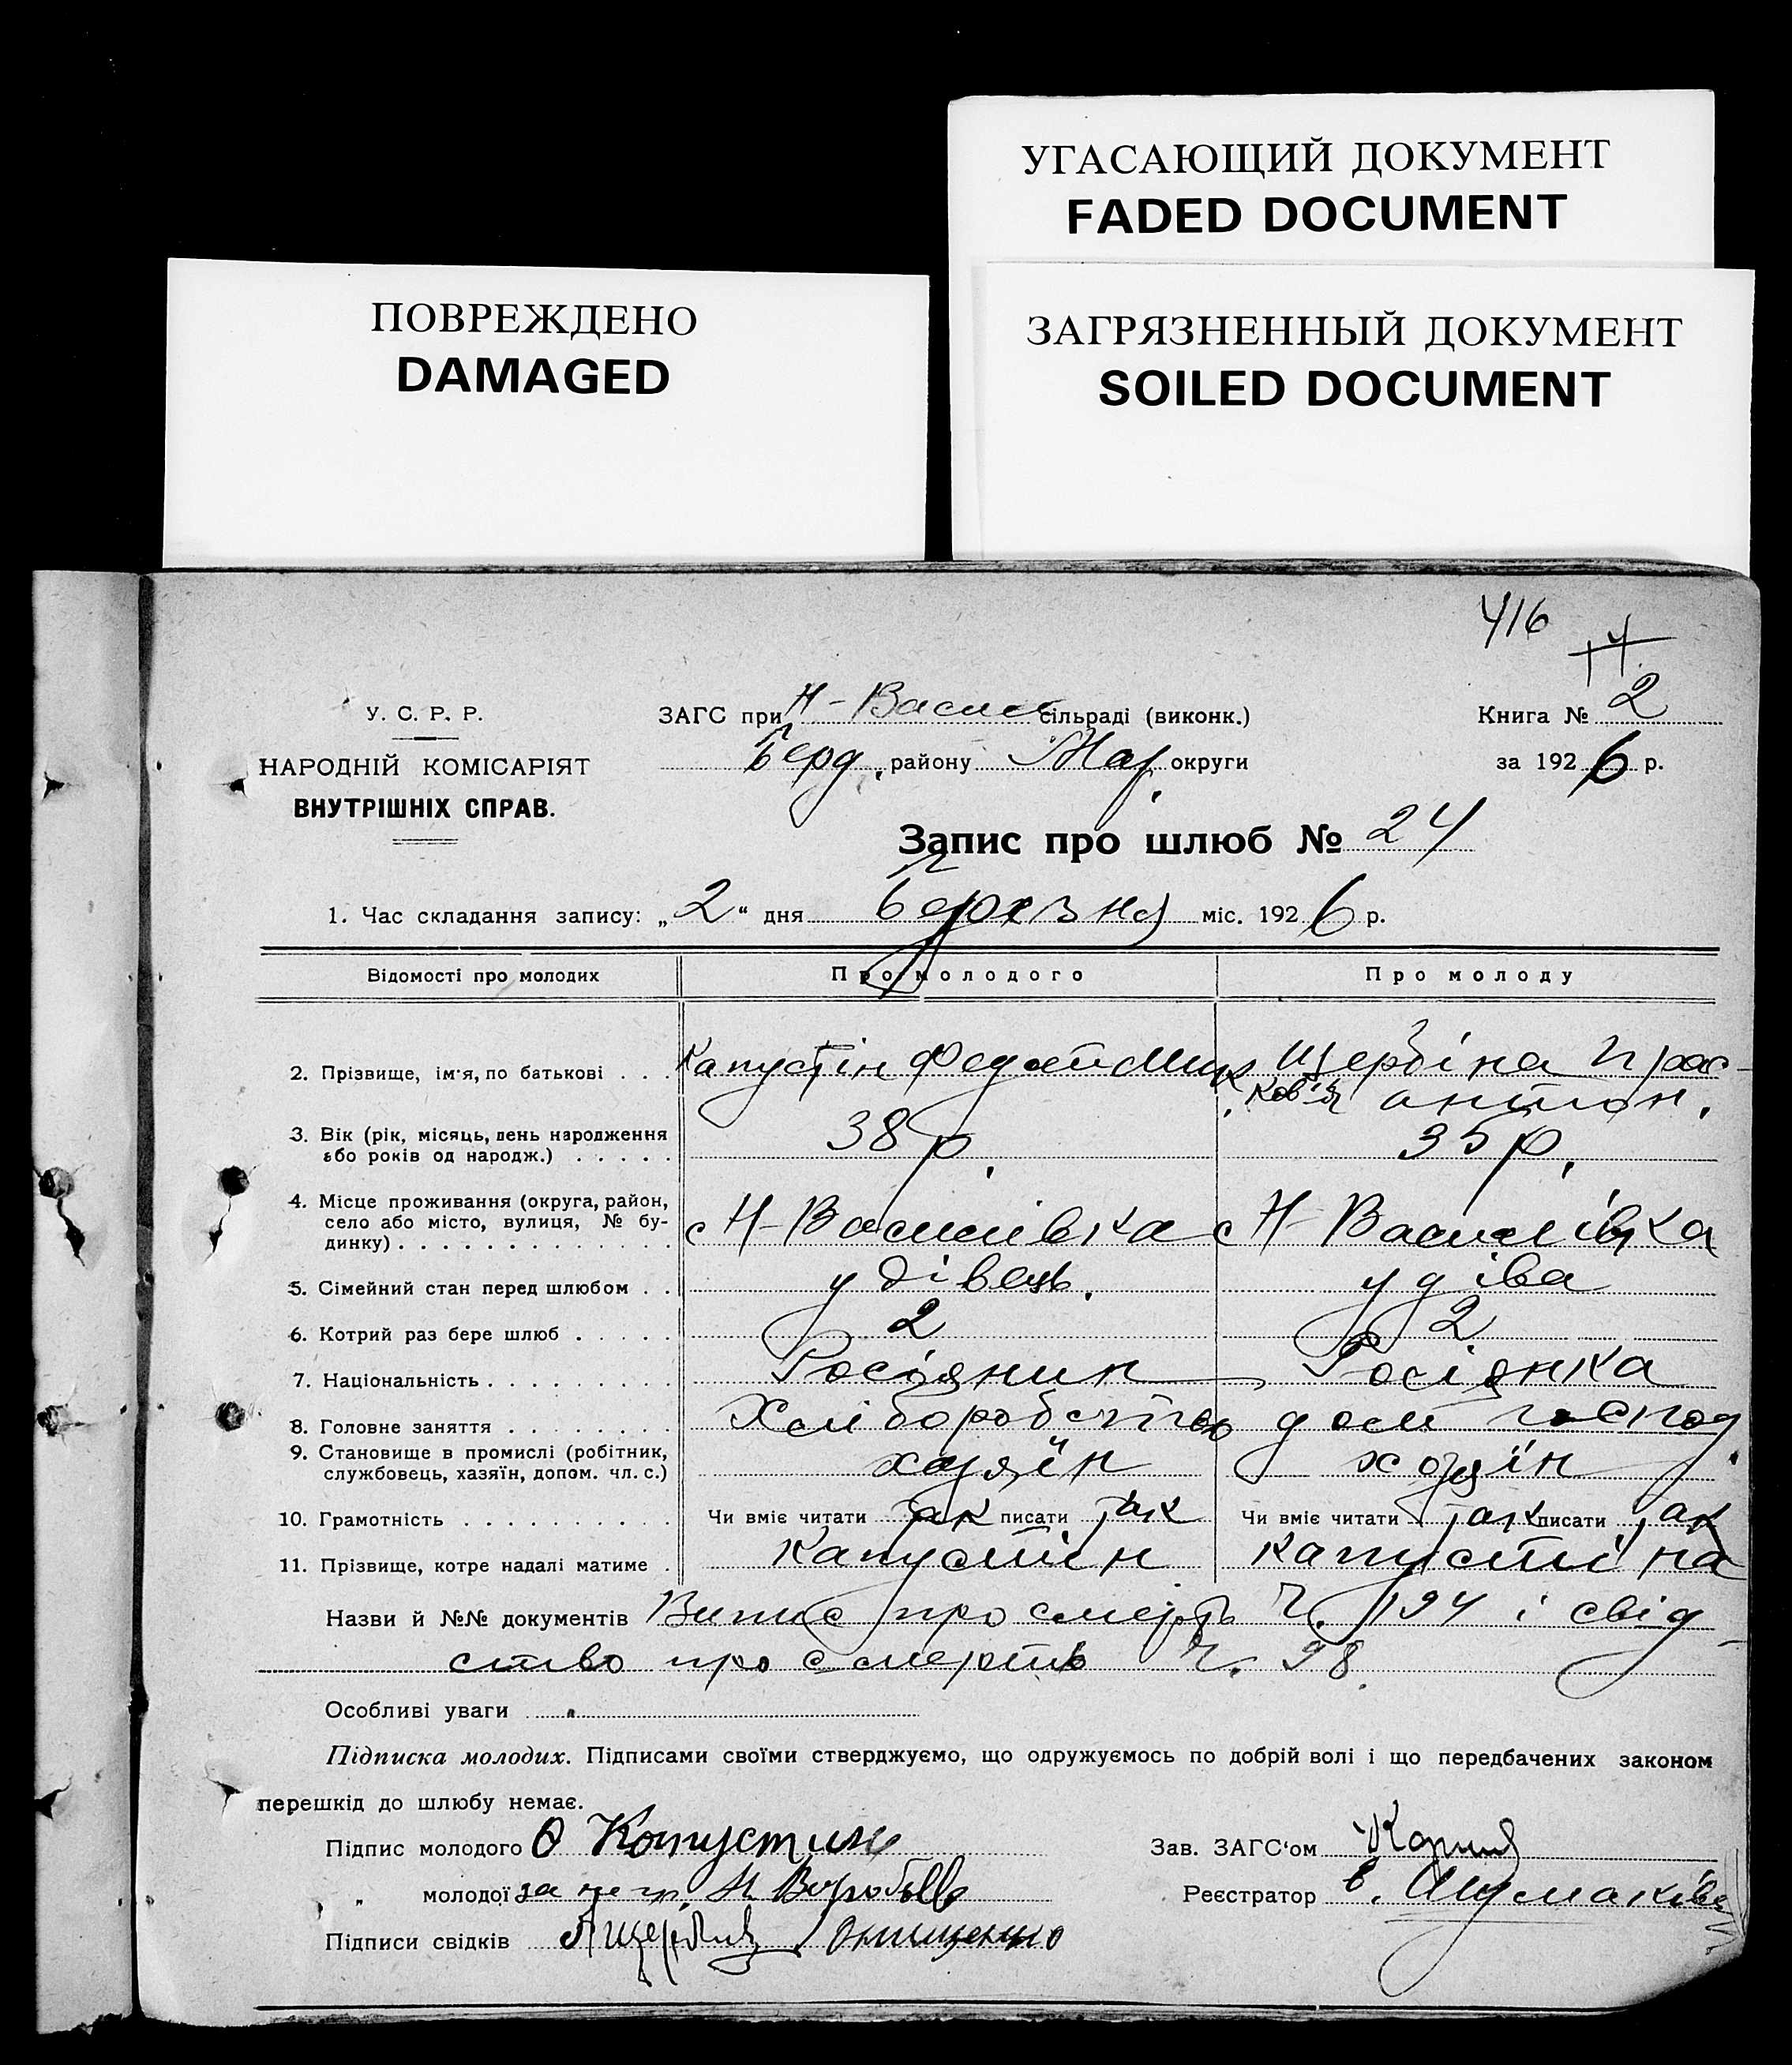 УГАСАЮЩИЙ ДОКУМЕНТ
FADED DOCUMENT
ПОВРЕЖДЕНО
DAMAGED
ЗАГРЯЗНЕННЫЙ ДОКУМЕНТ
SOILED DOCUMENT
416
У. С. Р. Р.
НАРОДНІЙ КОМІСАРІЯТ
ВНУТРІШНІХ СПРАВ.
ЗАГС при Н-Васил сільраді (виконк.)
Берд. району Мар. округи
Книга № 2
за 1926 р.
Запис про шлюб № 24
1. Час складання запису: „2“ дня березня міс. 1926 р.
Відомості про молодих Про молодого Про молоду
2. Прізвище, ім'я, по батькові . . . Капустін Федот Мих. Щербіна Прас-
ков'я антон.
3. Вік (рік, місяць, день народження
або років од народж.) . . . . . 38 р. 35 р.
4. Місце проживання (округа, район,
село або місто, вулиця, № бу-
динку) . . . . . . . . . . . . . с Н-Василівка с Н-Василівка
5. Сімейний стан перед шлюбом . . удівець. удіва
6. Котрий раз бере шлюб . . . . . 2 2
7. Національність . . . . . . . . . Росіянин Росіянка
8. Головне заняття . . . . . . . . Хліборобство дом господ.
9. Становище в промислі (робітник,
службовець, хазяїн, допом. чл. с.) хазяїн хазяїн
10. Грамотність . . . . . . . . . . Чи вміє читати так писати так Чи вміє читати так писати так
11. Прізвище, котре надалі матиме . Капустін Капустіна
Назви й №№ документів Випис про смерть Ч. 194 і свід-
ство про смерть Ч. 98.
Особливі уваги
Підписка молодих. Підписами своїми стверджуємо, що одружуємось по добрій волі і що передбачених законом
перешкід до шлюбу немає.
Підпис молодого Ѳ Капустин
„ молодої за негр.
Підписи свідків Онищенко
Зав. ЗАГС'ом
Реєстратор